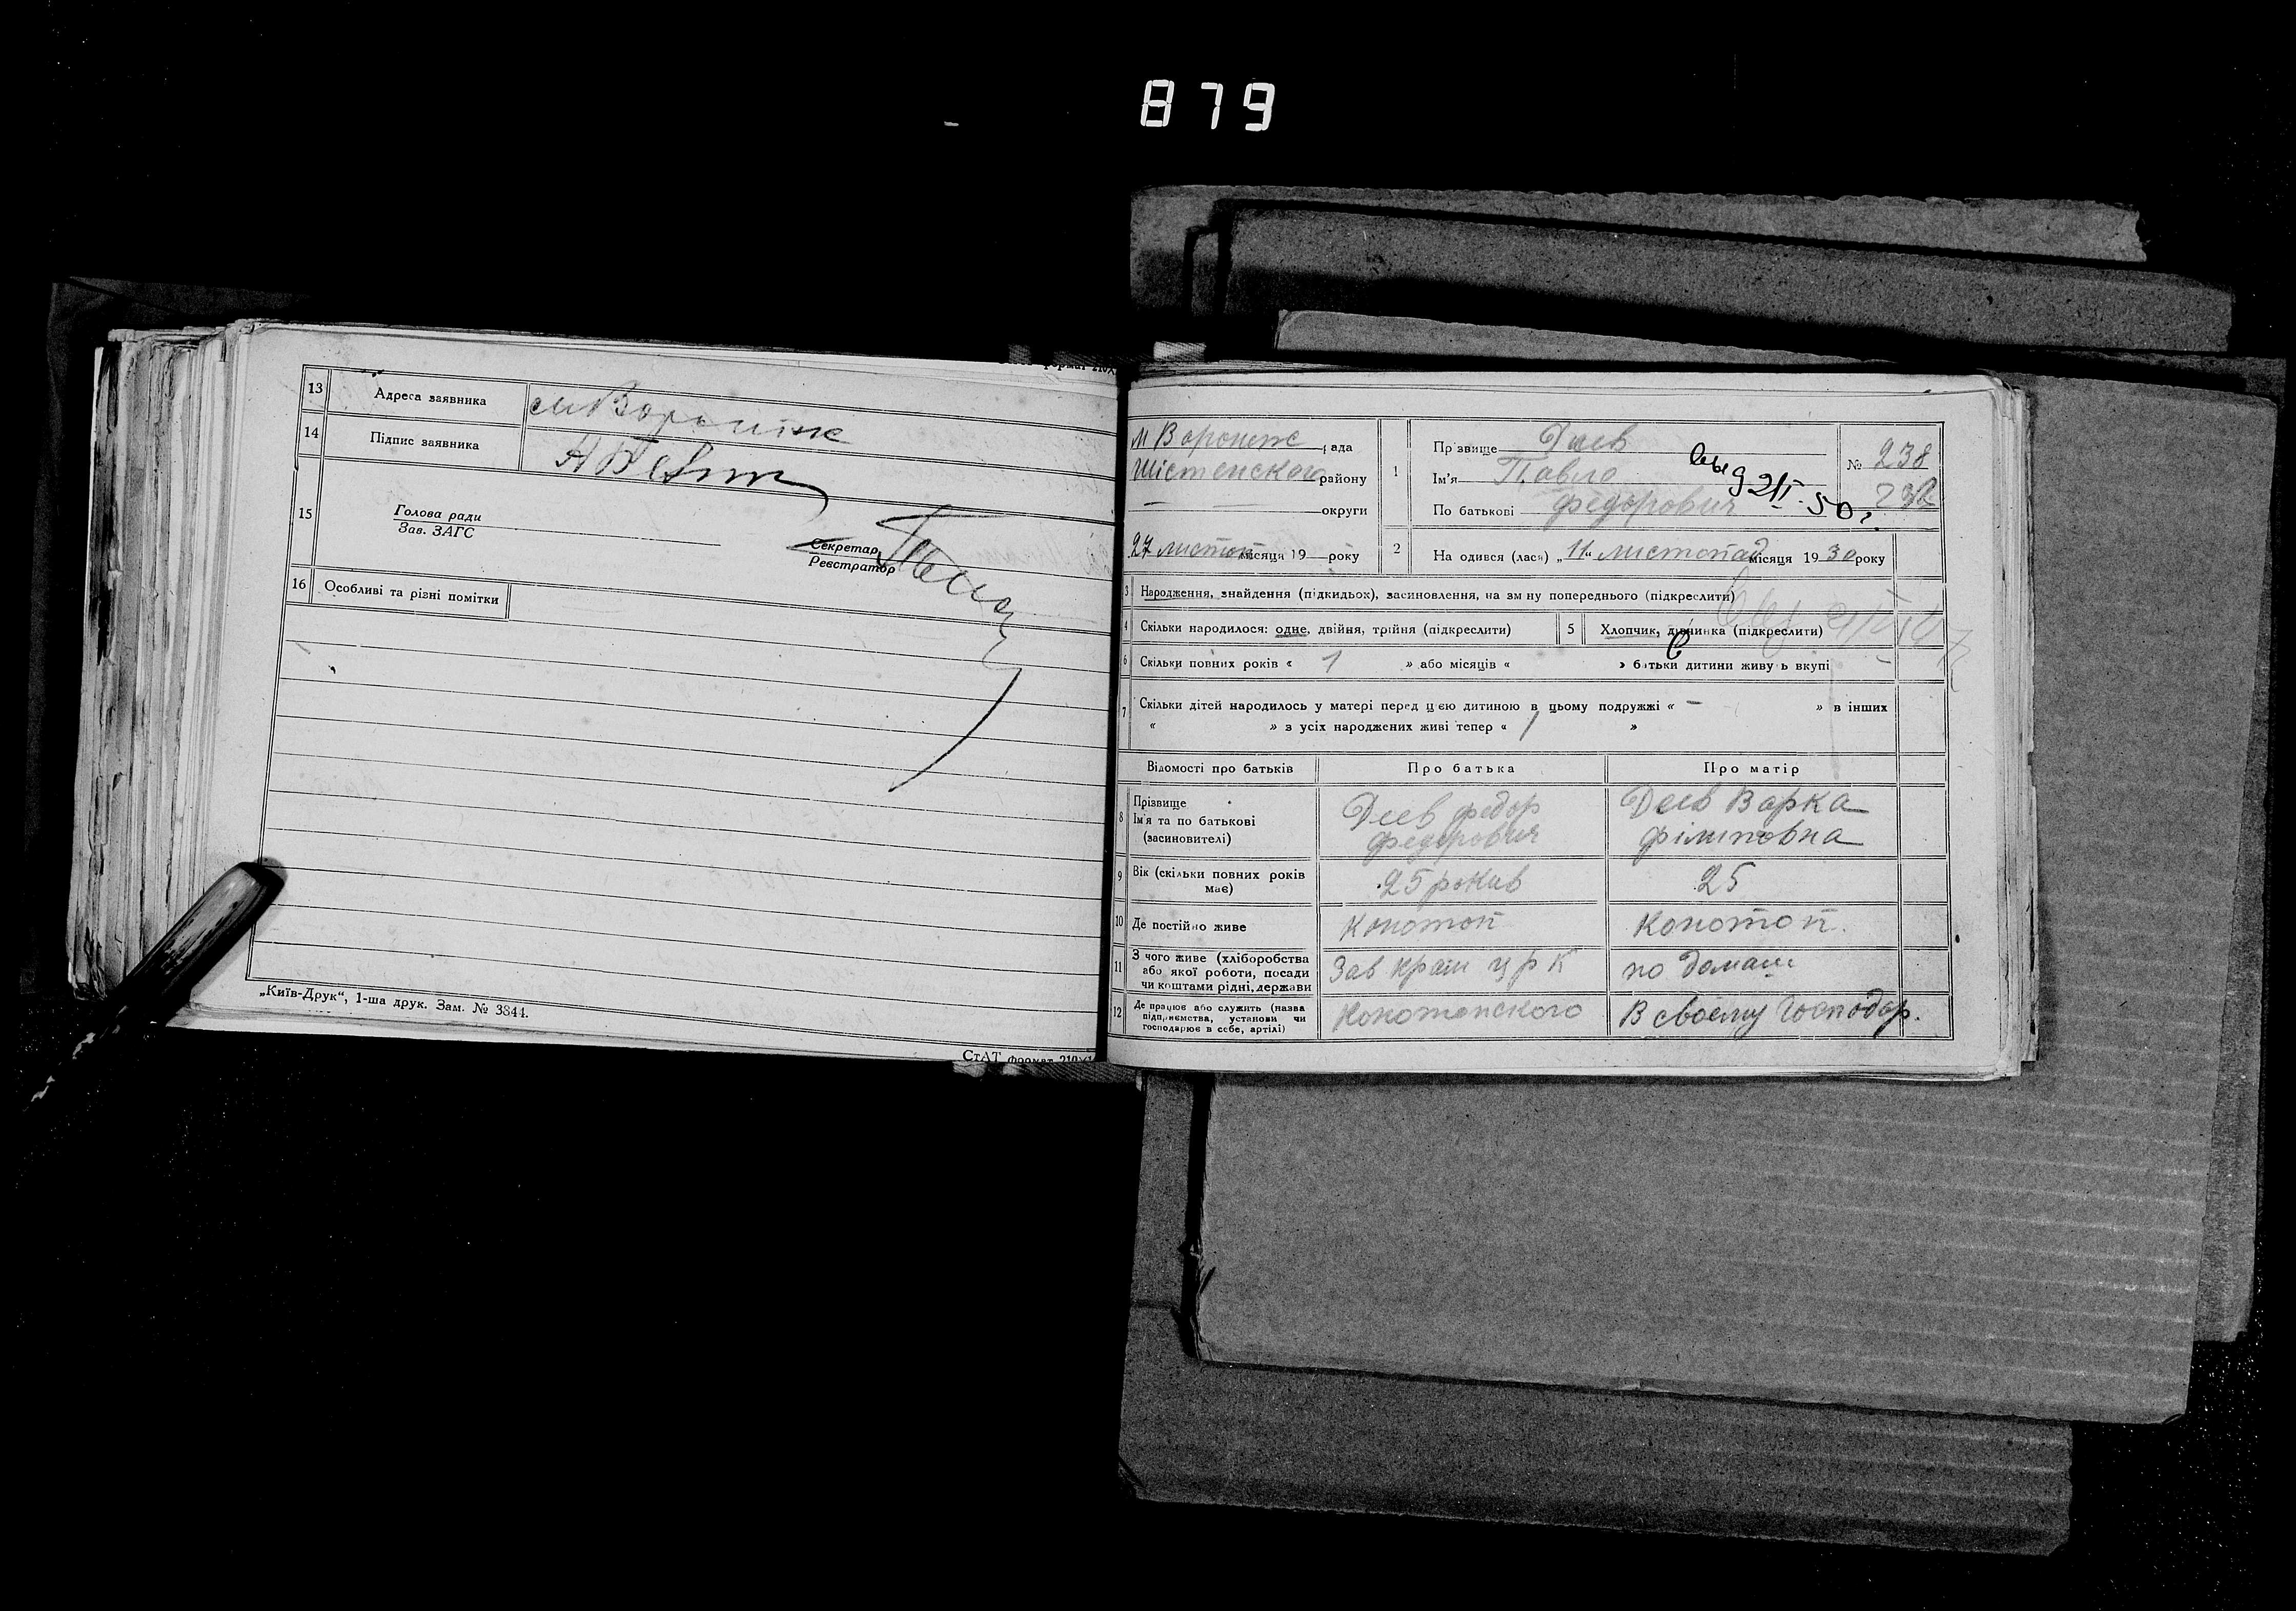 879
13 Адреса заявника м Вороніж
14 Підпис заявника
15 Голова ради
Зав. ЗАГС
Секретар
Реєстратор
16 Особливі та різні помітки
„Київ-Друк“, 1-ша друк. Зам. № 3844.
СтАТ формат 210×
м Воронеж рада
Шістенского району
— округи
27 листоп місяця 19 — року
1 Прізвище Деев
Ім'я Павло
По батькові Федорович
№ 238
238
21/I-50 г.
2 На одився (лася) „11“ листопад місяця 1930 року
3 Народження, знайдення (підкидьок), засиновлення, на зміну попереднього (підкреслити)
4 Скільки народилося: одне, двійня, трійня (підкреслити)
5 Хлопчик, дівчинка (підкреслити)
6 Скільки повних років « 1 » або місяців « » батьки дитини живуть вкупі
7 Скільки дітей народилось у матері перед цією дитиною в цьому подружжі « — » в інших
« » з усіх народжених живі тепер « 1 »
Відомості про батьків Про батька Про матір
8 Прізвище
Ім'я та по батькові
(засиновителі)
Деев Федор
Федорович
Деев Варка
Філиповна
9 Вік (скільки повних років
має)
25 рокив 25
10 Де постійно живе Конотоп Конотоп.
11 З чого живе (хліборобства
або якої роботи, посади
чи коштами рідні, держави
Зав крам црк по домаш
12 Де працює або служить (назва
підприємства, установи чи
господарює в себе, артілі)
Конотопского В своему господар.